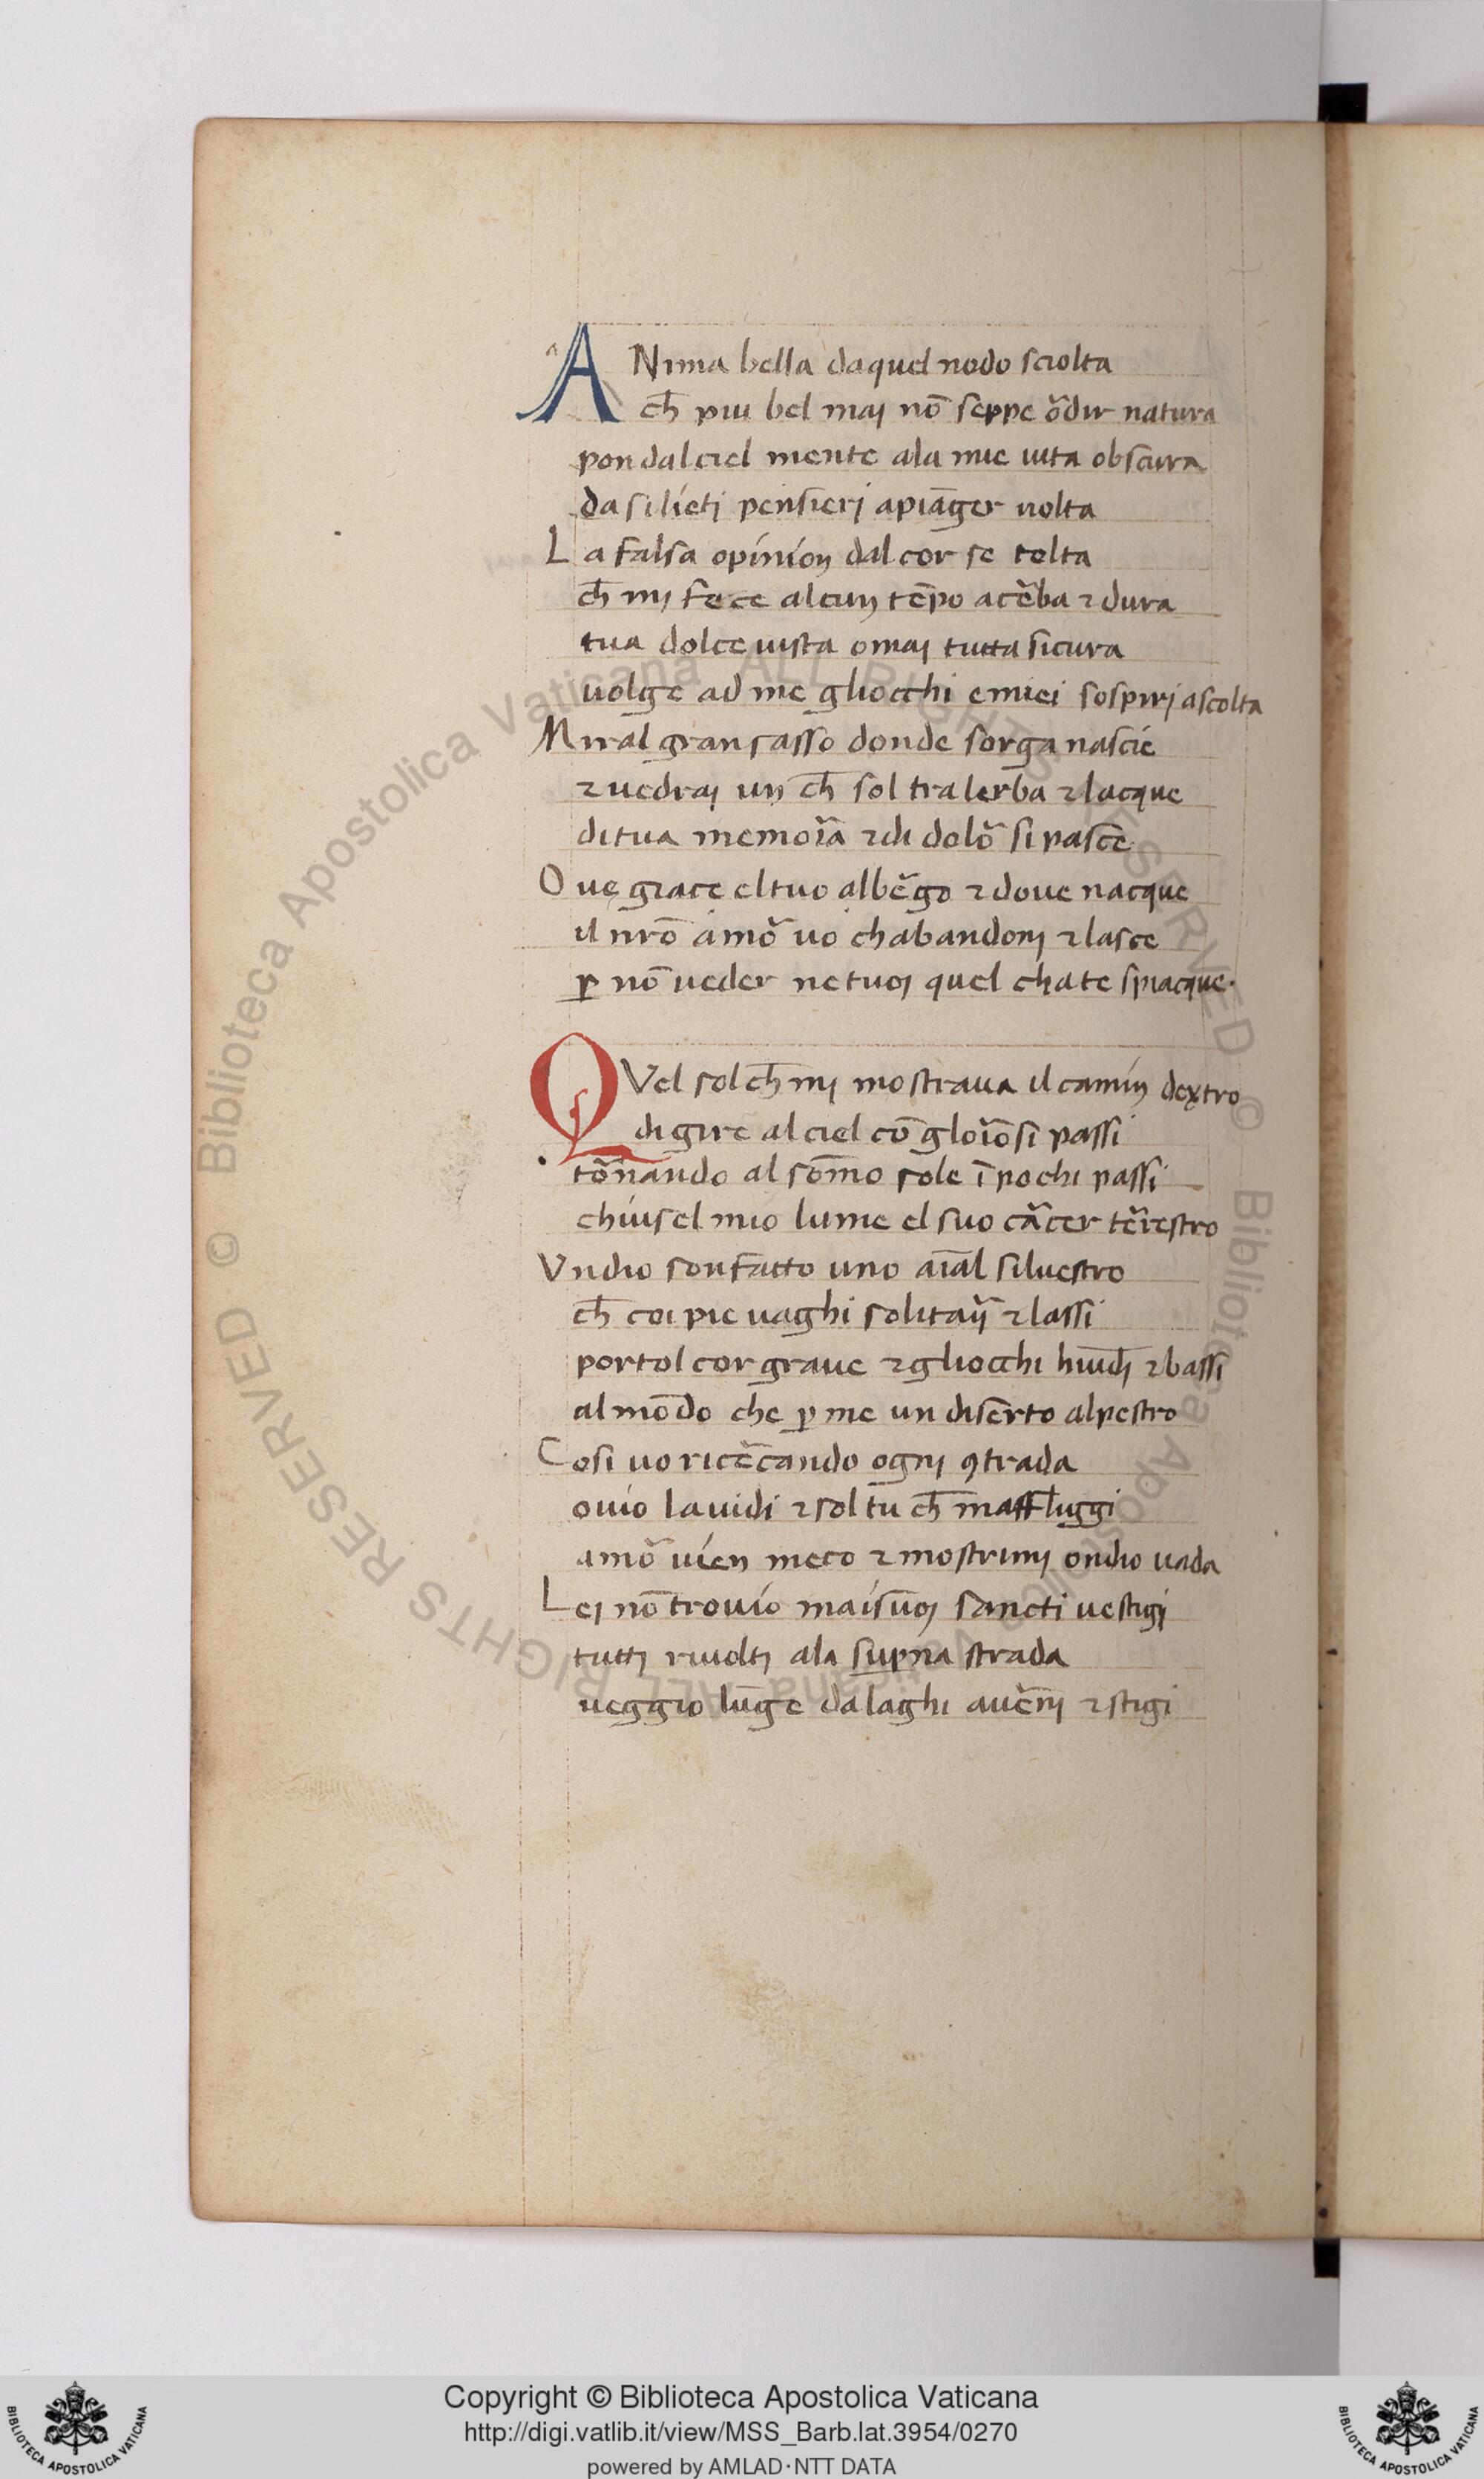 ANima bella daquel nodo sciolta
ch̄ piu bel maj nō seppe õdir natura
pon dal ciel mente ala mie uita obscura
da si lieti pensierj apiãger uolta
La falsa opinion dal cor se tolta
ch̄ mj fece alcun tēpo acẽba ⁊ dura
tua dolce uista omaj tutta sicura
uolge ad me gliocchi e miei sospirj ascolta
Miral gran sasso donde sorga nascie
⁊ uedraj un ch̄ sol tra lerba ⁊ lacque
di tua memoĩa ⁊ di dolõ si pasce
Oue giace el tuo albẽgo ⁊ doue nacque
il nr̄o amõ uo chabandonj ⁊ lasce
ꝑ nō ueder ne tuoj quel cha te spiacque.
QVel sol ch̄ mj mostraua il camin dextro
di gire al ciel cō gloĩosi passi
tõnando al sōmo sole ī pochi passi
chiusel mio lume el suo cãcer tẽrestro
Vndio son fatto uno aīal siluestro
ch̄ coi pie uaghi solitaij̃ ⁊ lassi
portol cor graue ⁊ gliocchi humidj ⁊ bassi
al mōdo che ꝑ me un diserto alpestro
Cosi uo ricẽcando ognj ꝯtrada
ouio la uidi ⁊ sol tu ch̄ maffluggi
amõ uien meco ⁊ mostrimj ondio uada
Lej nō trouio mai suoj sancti uestigj
tuttj riuoltj ala suꝑna strada
ueggio lūge da laghi auẽnj ⁊ stigi
Copyright © Biblioteca Apostolica Vaticana
http://digi.vatlib.it/view/MSS_Barb.lat.3954/0270
powered by AMLAD·NTT DATA
BIBLIOTECA APOSTOLICA VATICANA
BIBLIOTECA APOSTOLICA VATICANA
© Biblioteca Apostolica Vaticana ALL RIGHTS RESERVED
© Biblioteca Apostolica Vaticana ALL RIGHTS RESERVED